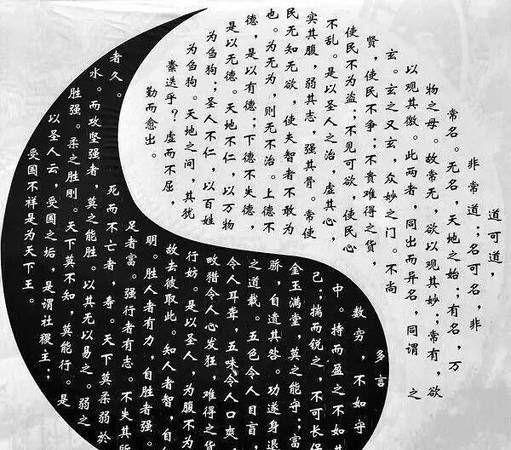 道可道，
非常道；名可名，非
常名。无名，天地之始；有名，万
物之母。故常无，欲以观其妙；常有，欲
以观其徼。此两者，同出而异名，同谓之
玄。玄之又玄，众妙之门。不尚
贤，使民不争；不贵难得之货，
使民不为盗；不见可欲，使民心
不乱。是以圣人之治，虚其心，
实其腹，弱其志，强其骨。常使
民无知无欲，使夫智者不敢为
也。为无为，则无不治。上德不
德，是以有德；下德不失德，
是以无德。天地不仁，以万物
为刍狗；圣人不仁，以百姓
为刍狗。天地之间，其犹
乎？虚而不屈，
而愈出。
多言
数穷，不如守
中。持而盈之不如其
己；揣而锐之，不可长保
金玉满堂，莫之能守；富
骄，自遗其咎。功遂身退
之道载。五色令人目盲，
令人耳聋，五味令人口爽，
畋猎令人心发狂，难得之货
行妨。是以圣人，为腹不为
故去彼取此。知人者智，自
明。胜人者有力，自胜者强。
足者富。强行者有志。不失其所
者久。死而不亡者，寿。天下莫柔弱於
水。而攻坚强者，莫之能胜。以其无以易之。弱之
胜强。柔之胜刚。天下莫不知，莫能行。是
以圣人云，受国之垢，是谓社稷主；
受国不祥是为天下王。